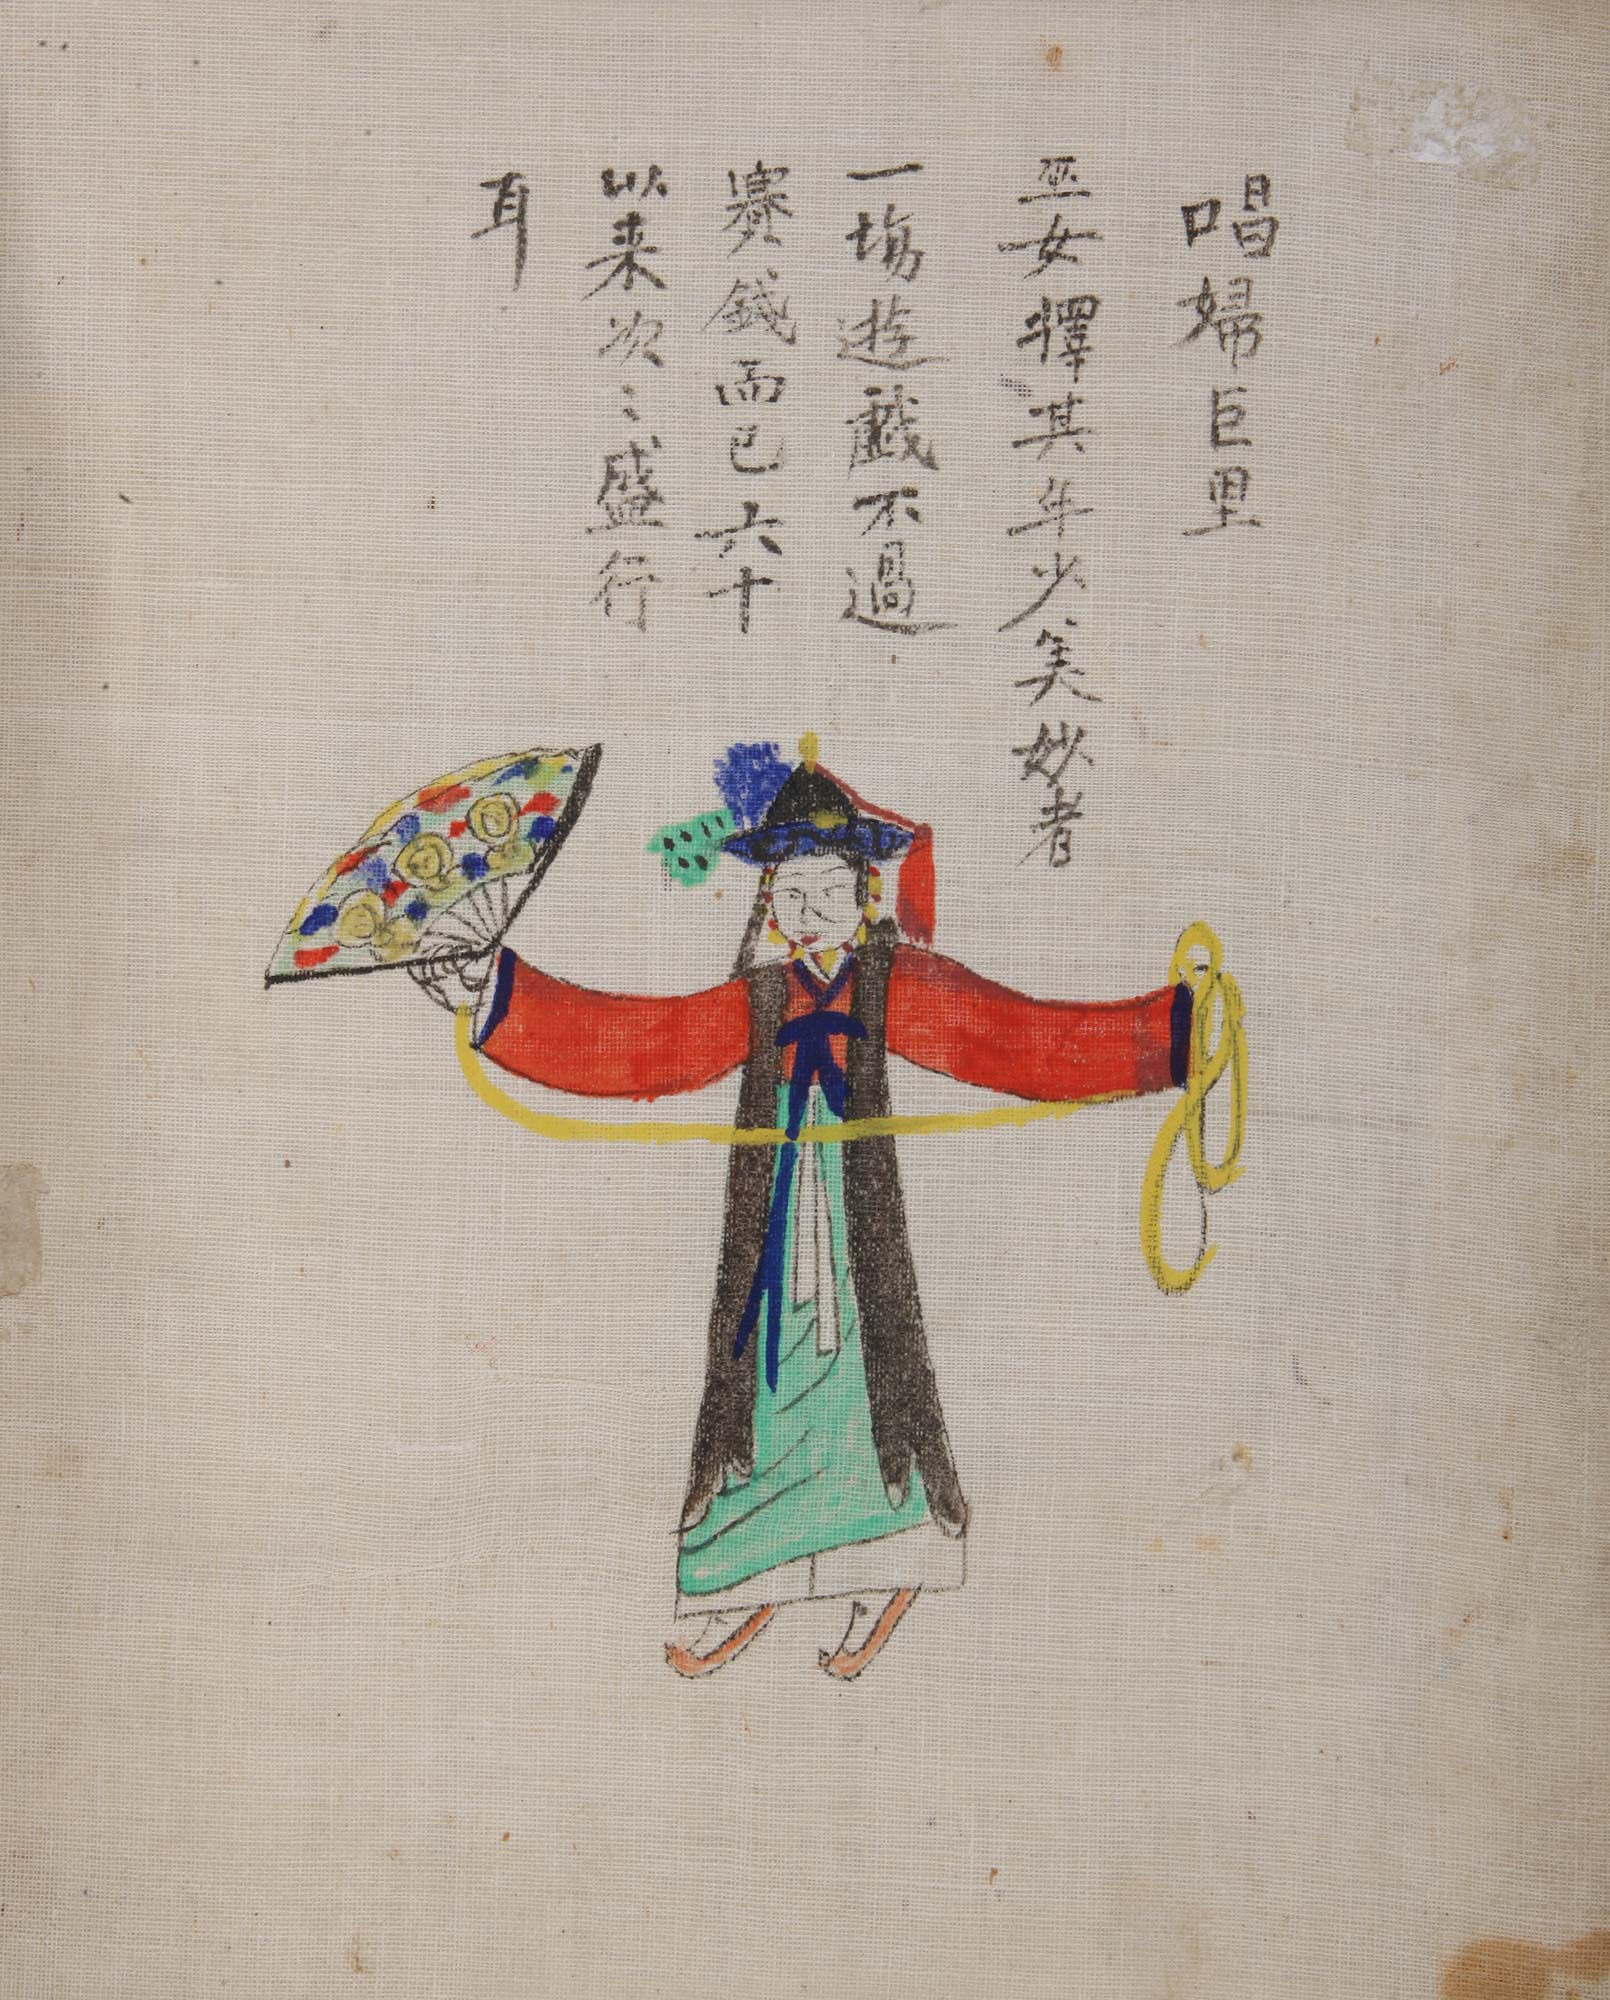 唱婦巨里
巫女擇其年少美妙者
一場遊戱不過
賽錢而已六十
以来次〻盛行
耳